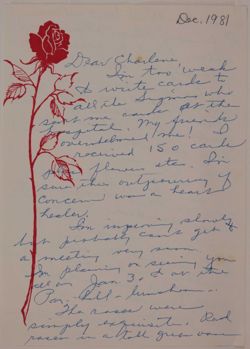 Dec. 1981
Dear Charlene,
I'm too weak
to write cards to
all the
sent me cards at the
hospital. My friends
overwhelmed me! I
received 150 cards
flowers etc. I'm
sure this outpouring of
concern was a heart
healer.
I'm improving slowly
but probably can't get to
a meeting very soon.
I'm planning on seeing you
all on Jan. 30 at the
luncheon.
The roses were
simply exquisite. Red
roses in a tall green vase